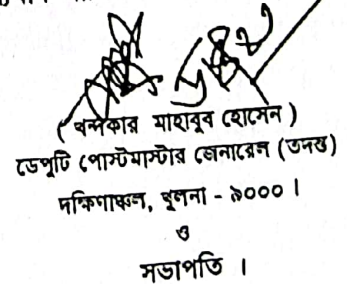 ( খন্দকার মাহাবুব হোসেন )
ডেপুটি পোস্টমাস্টার জেনারেল (তদন্ত)
দক্ষিণাঞ্চল, খুলনা - ৯০০০ ।
ও
সভাপতি ।